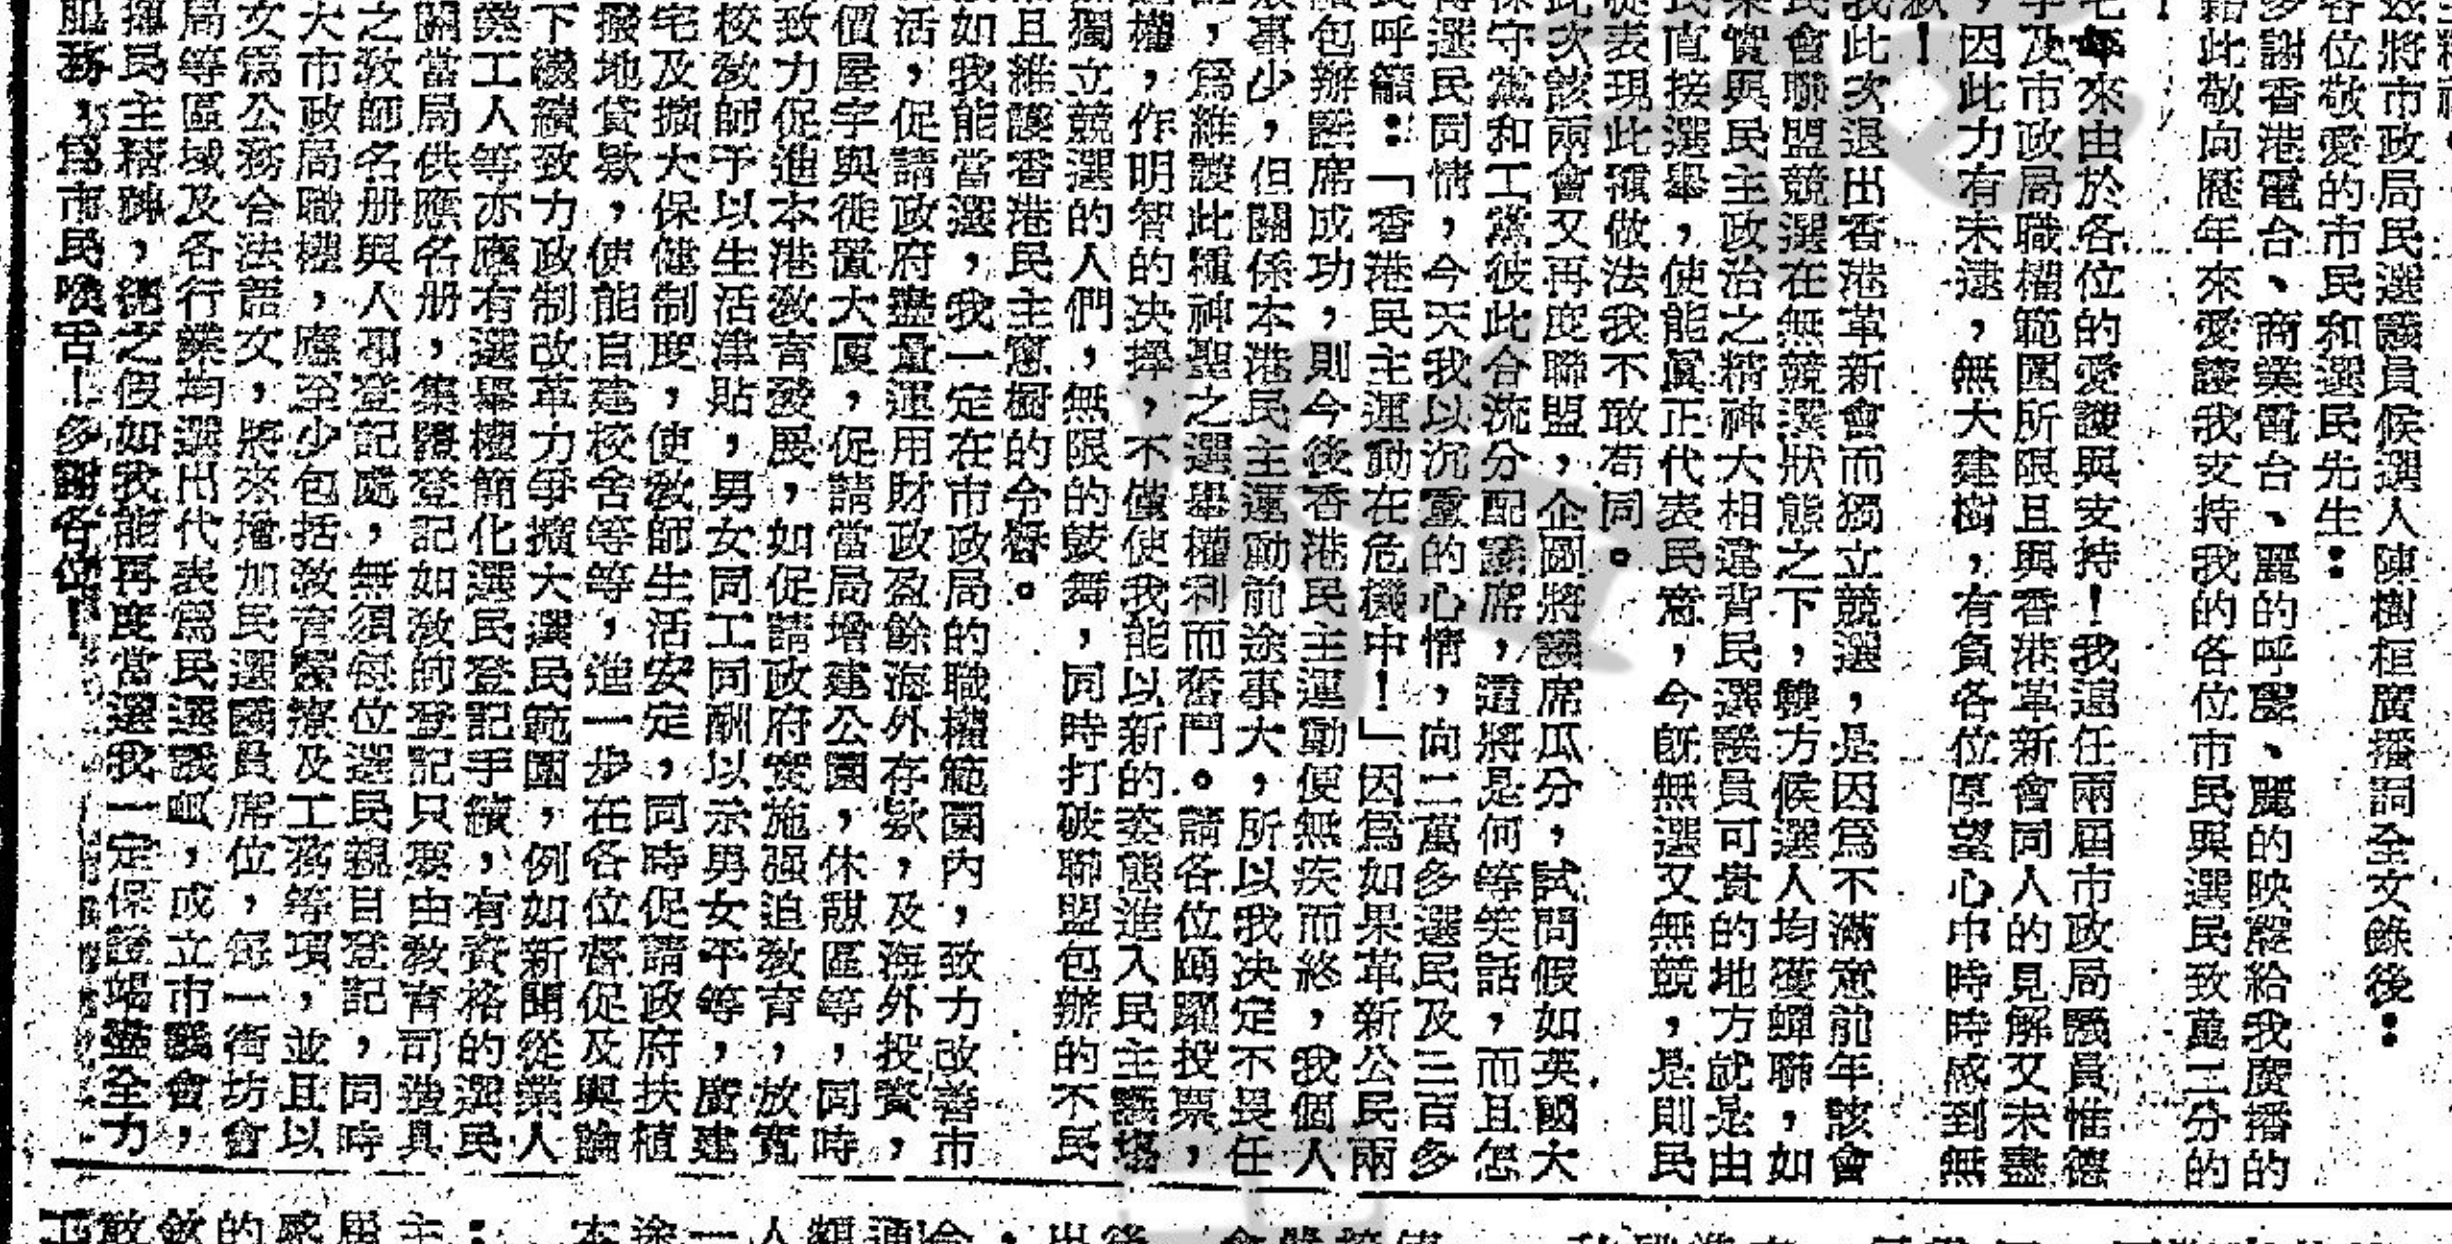 茲將市政局民選議員候選人陳樹桓廣播詞全文錄後：
各位敬愛的市民和選民先生：
多謝香港電台、商業電台、麗的呼聲、麗的映聲給我廣播的
藉此敬向歷年來愛護我支持我的各位市民與選民致萬二分的
！
年來由於各位的愛護與支持！我連任兩屆市政局議員惟德
學及市政局職權範圍所限且與香港革新會同人的見解又未盡
，因此力有未逮，無大建樹，有負各位厚望心中時時感到無
歉！
我此次退出香港革新會而獨立競選，是因爲不滿意前年該會
民會聯盟競選在無競選狀態之下，雙方候選人均獲蟬聯，如
果實與民主政治之精神大相違背民選議員可貴的地方就是由
民直接選舉，使能眞正代表民意，今旣無選又無競，是則民
從表現此種做法我不敢苟同。
此次該兩會又再度聯盟，企圖將議席瓜分，試問假如英國大
保守黨和工黨彼此合流分配議席，這將是何等笑話，而且怎
得選民同情，今天我以沉重的心情，向二萬多選民及三百多
民呼籲：「香港民主運動在危機中！」因爲如果革新公民兩
續包辦議席成功，則今後香港民主運動便無疾而終，我個人
敗事少，但關係本港民主運動前途事大，所以我決定不畏任
，爲維護此種神聖之選舉權利而奮鬥。請各位踴躍投票，
權，作明智的決擇，不僅使我能以新的姿態進入民主議壇
獨立競選的人們，無限的鼓舞，同時打破聯盟包辦的不民
且維護香港民主窻櫥的令譽。
如我能當選，我一定在市政局的職權範圍內，致力改善市
活，促請政府盡量運用財政盈餘海外存欵，及海外投資，
價屋宇與徙置大厦，促請當局增建公園，休憩區等，同時
致力促進本港敎育發展，如促請政府實施强迫敎育，放寬
校敎師予以生活津貼，男女同工同酬以示男女平等，廣建
宅及擴大保健制度，使敎師生活安定，同時促請政府扶植
撥地貸欵，使能自建校舍等等，進一步在各位督促及輿論
下繼續致力政制改革力爭擴大選民範圍，例如新聞從業人
業工人等亦應有選舉權簡化選民登記手續，有資格的選民
關當局供應名册，集體登記如敎師登記只要由敎育司造具
之敎師名册與人事登記處，無須每位選民親自登記，同時
大市政局職權，應至少包括敎育醫療及工務等項，並且以
文爲公務合法語文，將來增加民選議員席位，每一街坊會
局等區域及各行業均選出代表爲民選議員，成立市議會，
揮民主精神，總之假如我能再度當選我一定保證竭盡全力
服務，爲市民喉舌！多謝各位！